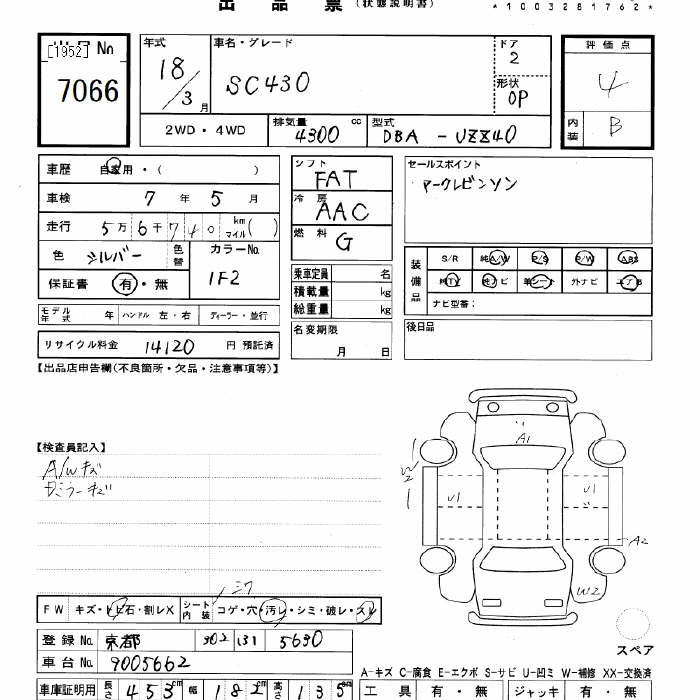 出品票 (状態説明書)
*1003281762*
[1952] No
7066
年式 車名・グレード ドア 2 評価点
18/3月 SC430 形状 OP 4
2WD・4WD 排気量 4300 cc 型式 DBA-UZZ40 内装 B
車歴 自家用・( ) シフト FAT セールスポイント
車検 7年5月 冷房 AAC マークレビンソン
走行 5万6千740 km マイル( ) 燃料 G
色 シルバー 色替 カラーNo. 1F2
装備品 S/R 純A/W P/S P/W ABS
保証書 有・無 乗車定員 名 純TV 純ナビ 革シート 外ナビ エアB
積載量 kg ナビ型番:
モデル年式 年 ハンドル 左・右 ディーラー・並行 総重量 kg
リサイクル料金 14120 円 預託済 名変期限 月 日 後日品
【出品店申告欄(不良箇所・欠品・注意事項等)】
【検査員記入】
A/Wキズ
ミラーキズ
A1
W2
U1 U1
A2
W2
スペア
シワ
FW キズ・トビ石・割レX シート内装 コゲ・穴・汚レ・シミ・破レ・スレ
登録No. 京都 302 131 5630
車台No. 9005662
A-キズ C-腐食 E-エクボ S-サビ U-凹ミ W-補修 XX-交換済
車庫証明用 長さ 453cm 幅 182cm 高さ 135cm 工具 有・無 ジャッキ 有・無